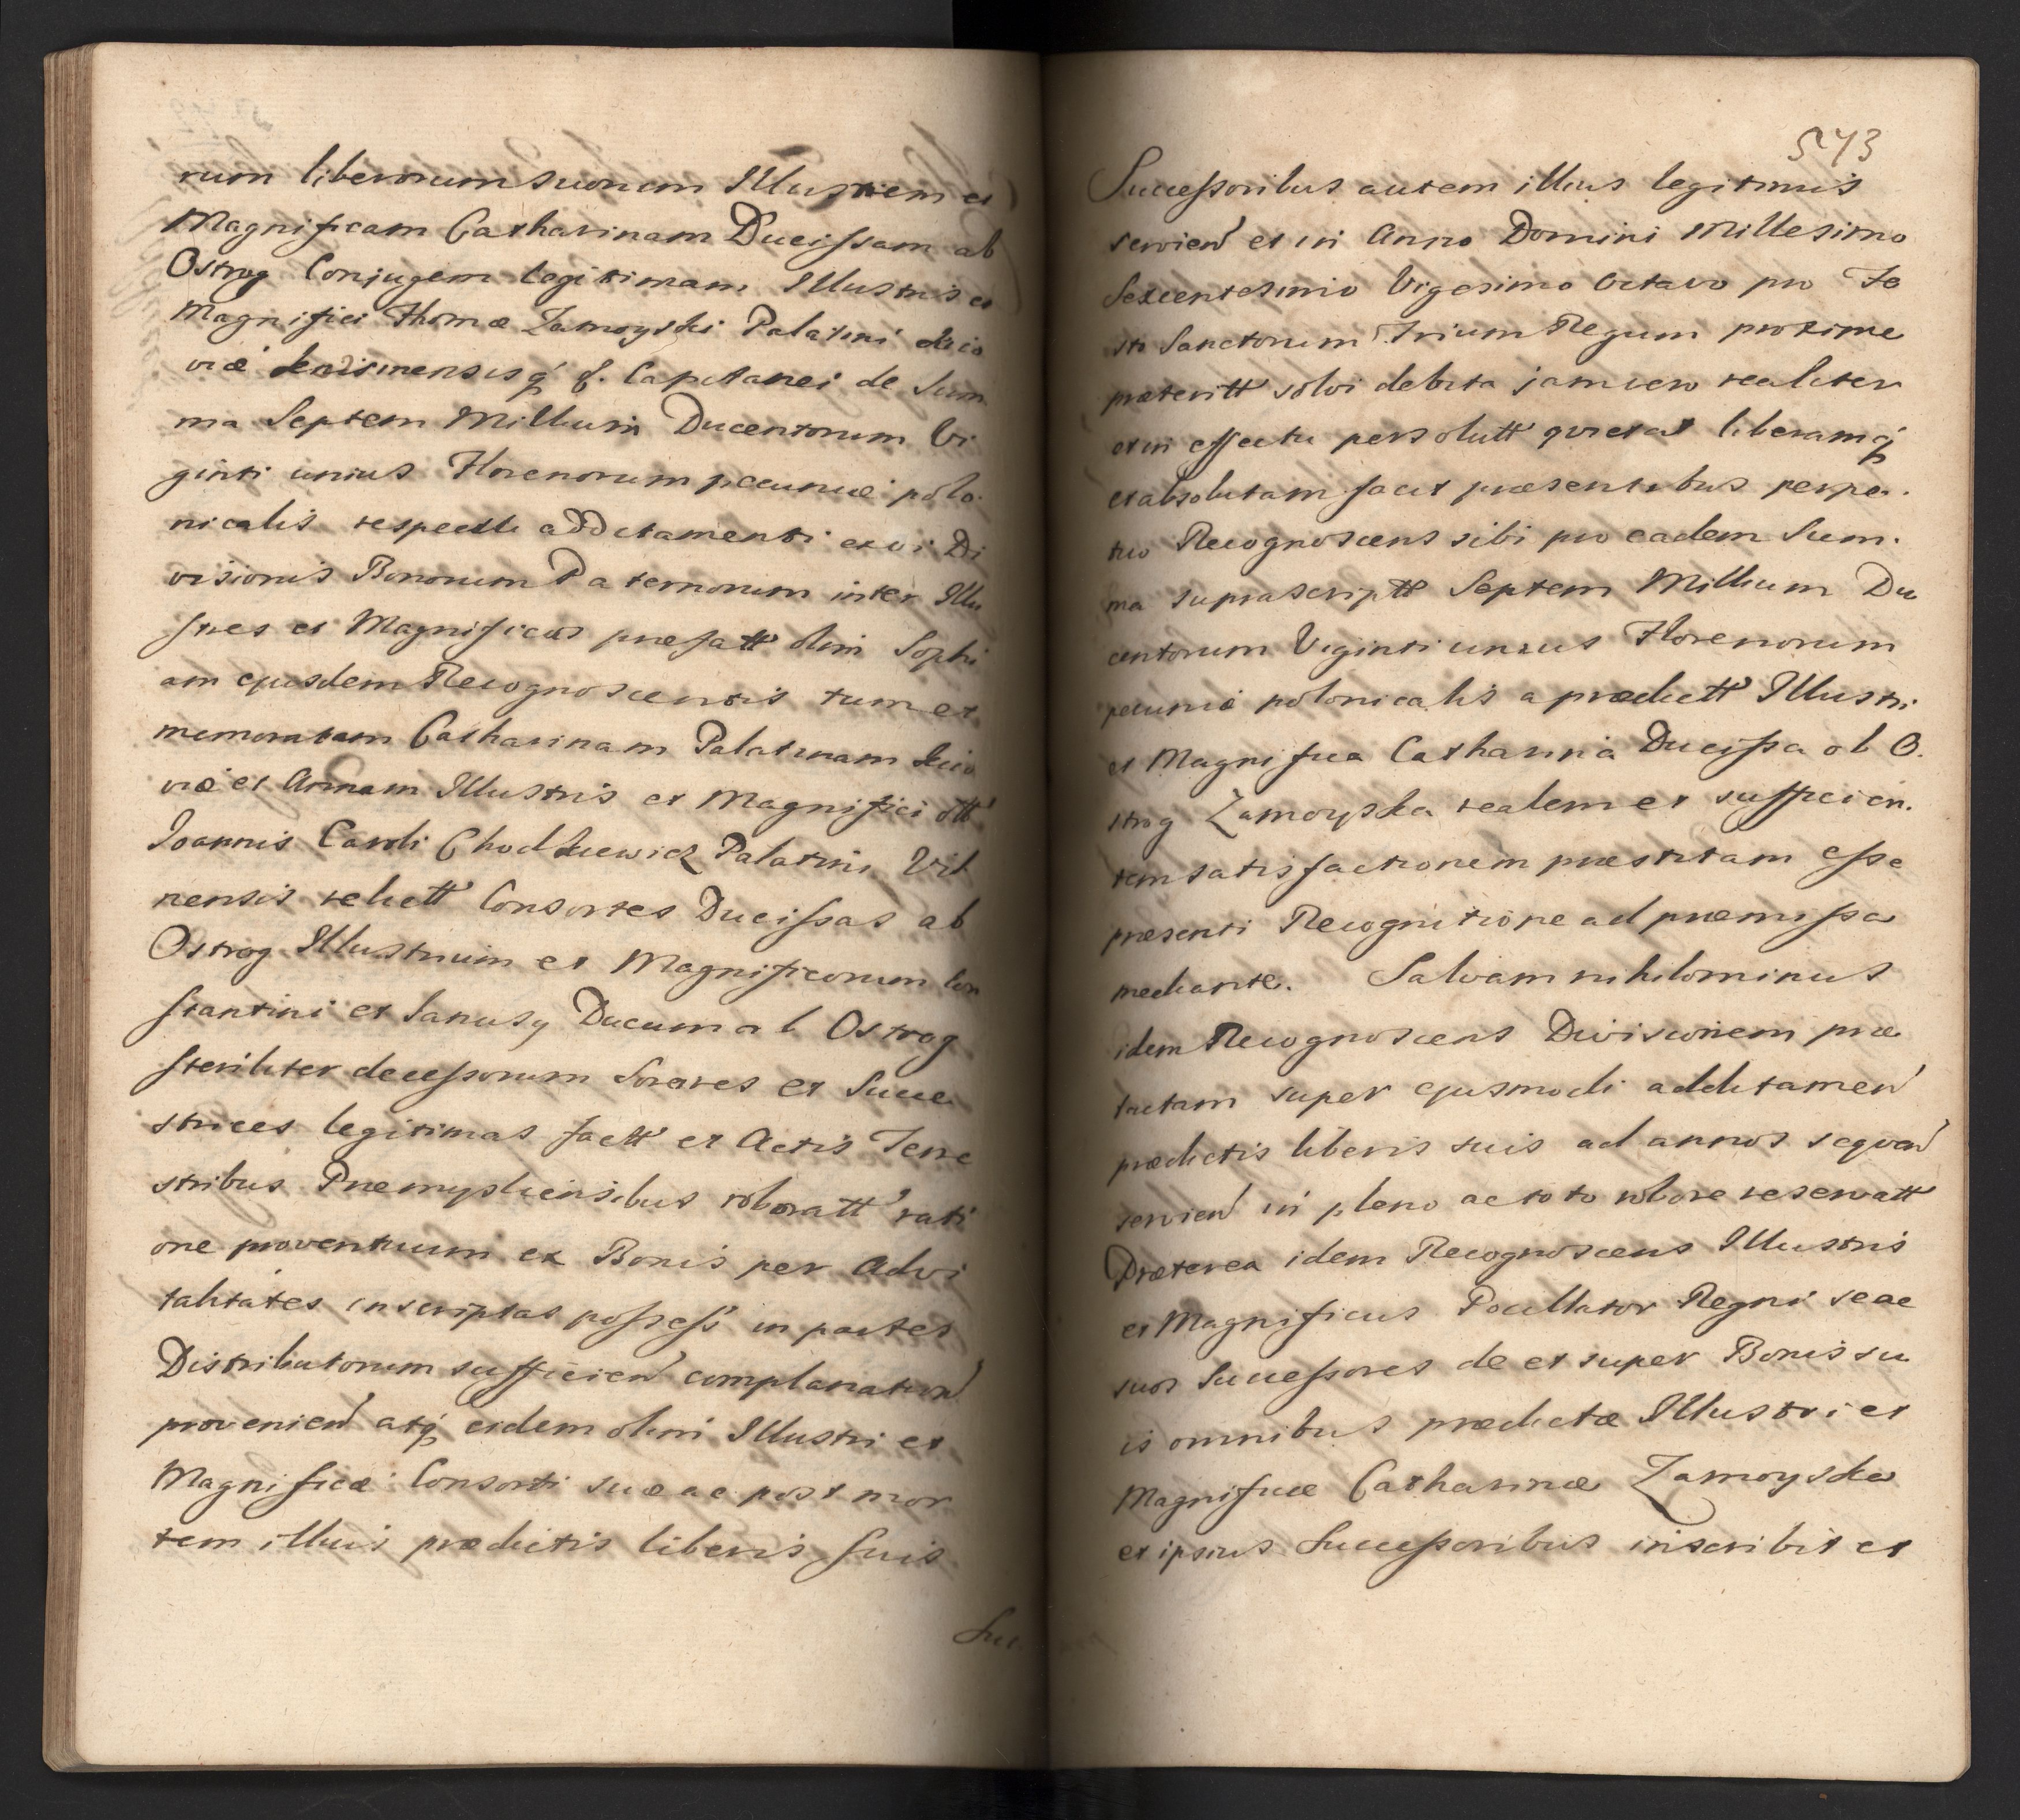 rum liberorum suorum Illustrem et
Magnificam Catharinam Ducissam ab
Ostrog Conjugem legitimam Illustris et
Magnifici Thomæ Zamoyski Palatini Kiio
viæ Knisinensisq́ &. Capitanei de Sum
ma Septem Millium Ducentorum Vi
ginti unius Florenorum pecuniæ polo
nicalis respectu additamenti ex vi Di
visionis Bonorum Paternorum inter Illu
stres et Magnificas præfatt olim Sophi
am ejusdem Recognoscentis tum et
memoratam Catharinam Palatinam Kiio
viæ et Annam Illustris et Magnifici ott
Joannis Caroli Chodkiewicz Palatini Vil
nensis relictt Consortes Ducissas ab
Ostrog Illustrium et Magnificorum Con
stantini et Janusy Ducum ab Ostrog
steriliter decessorum Sorores et Succe
strices legitimas factt et Actis Terre
stribus Præmysliensibus roboratt rati
one proventuum ex Bonis per Advi
talitates inscriptas possess in partes
Distributorum sufficien complanation
provenien atq́ eidem olim Illustri et
Magnificæ Consorti suæ ac post mor
tem illius prædictis liberis suis
Suc
573
Successoribus autem illius legitimis
servien et in Anno Domini Millesimo
Sexcentesimo Vigesimo Octavo pro Fe
sti Sanctorum Trium Regum proxime
præteritt solvi debita jam vero realiter
et in effectu persolutt quietat liberamq́
et absolutam facit præsentibus perpe.
tuo Recognoscens sibi pro eadem Sum.
ma suprascriptt Septem Millium Du
centorum Viginti unius Florenorum
pecuniæ polonicalis a prædictt Illustri
et Magnifica Catharina Ducissa ab O.
strog Zamoyska realem et sufficien.
tem satisfactionem præstitam esse
præsenti Recognitione ad præmissa
mediante. Salvam nihilominus
idem Recognoscens Divisionem præ
tactam super ejusmodi additamen
prædictis liberis suis ad annos sequen
servien in pleno ac toto robore reservatt
Præterea idem Recognoscens Illustris
et Magnificus Pocillator Regni se ac
suos Successores de et super Bonis su
is omnibus prædictæ Illustri et
Magnificæ Catharinæ Zamoyska
et ipsius Successoribus inscribit et